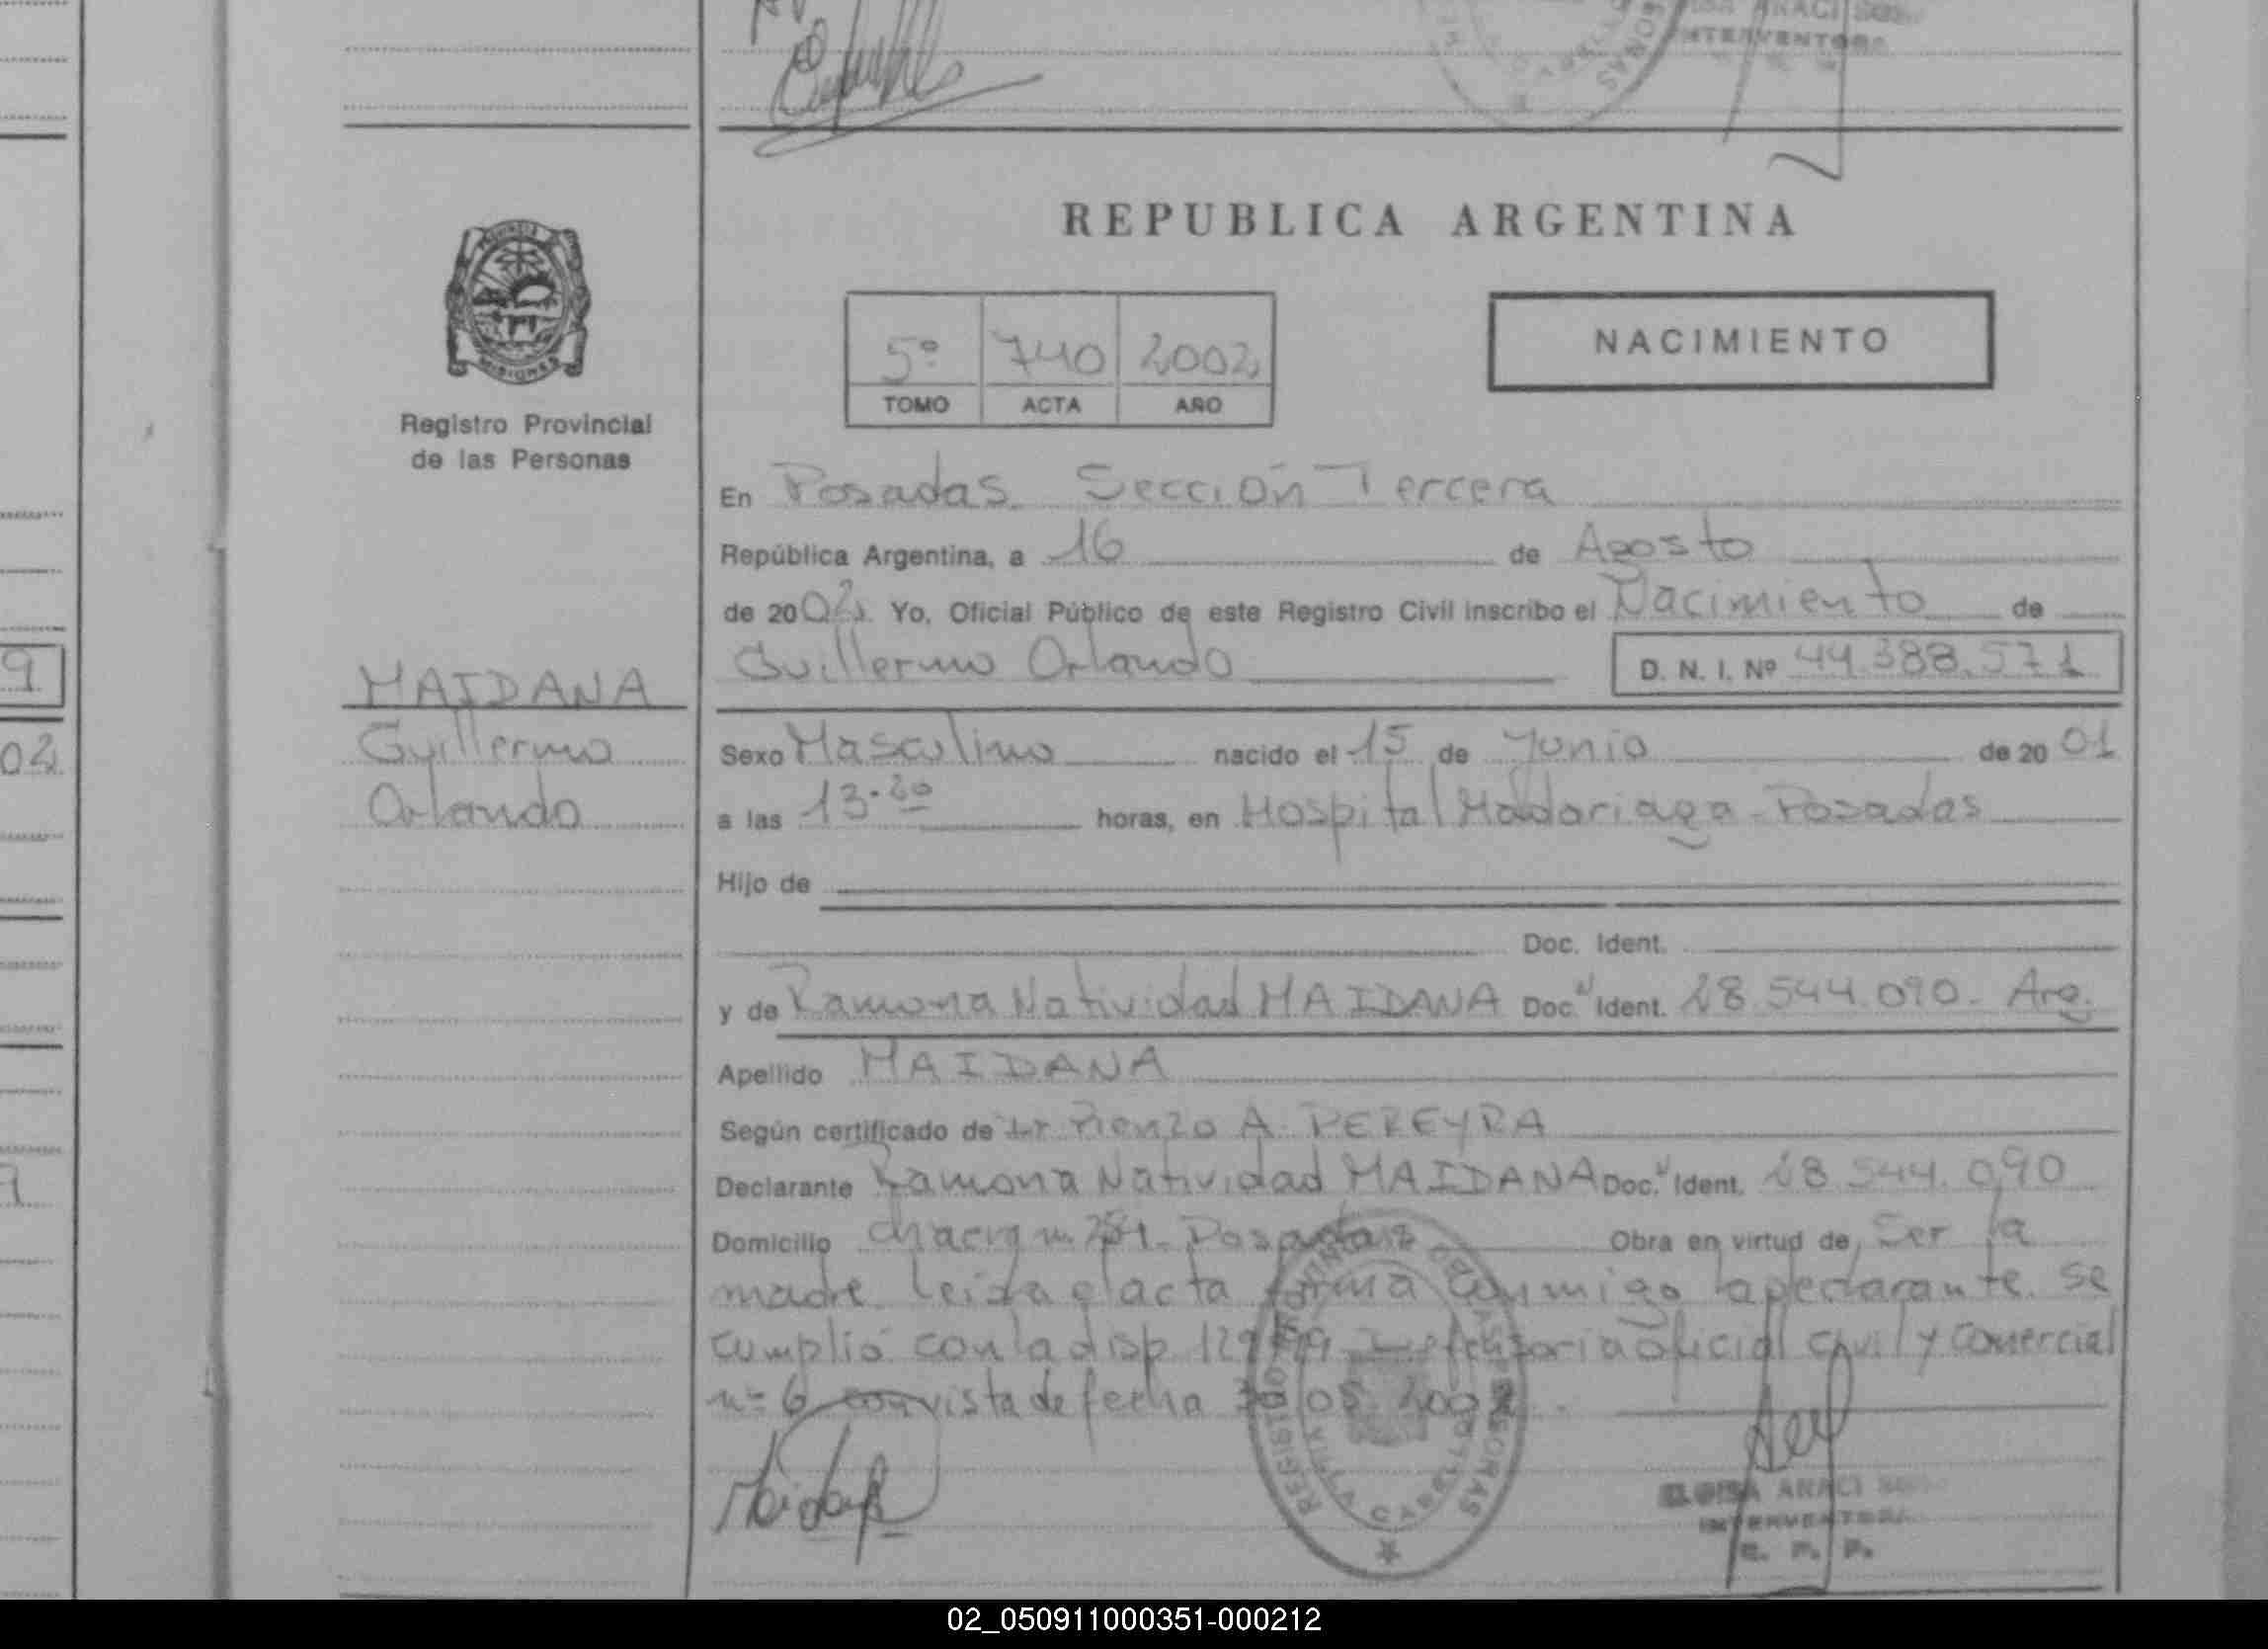 INTERVENTORA
REPUBLICA ARGENTINA
5º 740 2002
TOMO ACTA AÑO
NACIMIENTO
Registro Provincial
de las Personas
En Posadas Sección Tercera
República Argentina, a 16 de Agosto
de 2002 Yo, Oficial Público de este Registro Civil inscribo el Nacimiento de
Guillermo Orlando D. N. I. Nº 44.388.571
9
MAIDANA
Guillermo
Orlando
02
Sexo Masculino nacido el 15 de Junio de 20 01
a las 13.20 horas, en Hospital Madariaga - Posadas
Hijo de
Doc. Ident.
y de Ramona Natividad MAIDANA Doc. Ident. 28.544.090. Arg.
Apellido MAIDANA
Según certificado de Dr. Rienzo A. PEREYRA
Declarante Ramona Natividad MAIDANA Doc. Ident. 28.544.090
Domicilio Posadas Obra en virtud de Ser la
madre. Leida el acta firma conmigo la declarante. se
cumplió con la disp 129/99 Defensoria oficial civil y Comercial
nº 6 con vista de fecha 30 05 2002.
ARACI
INTERVENTORA
R. P. P.
02_050911000351-000212